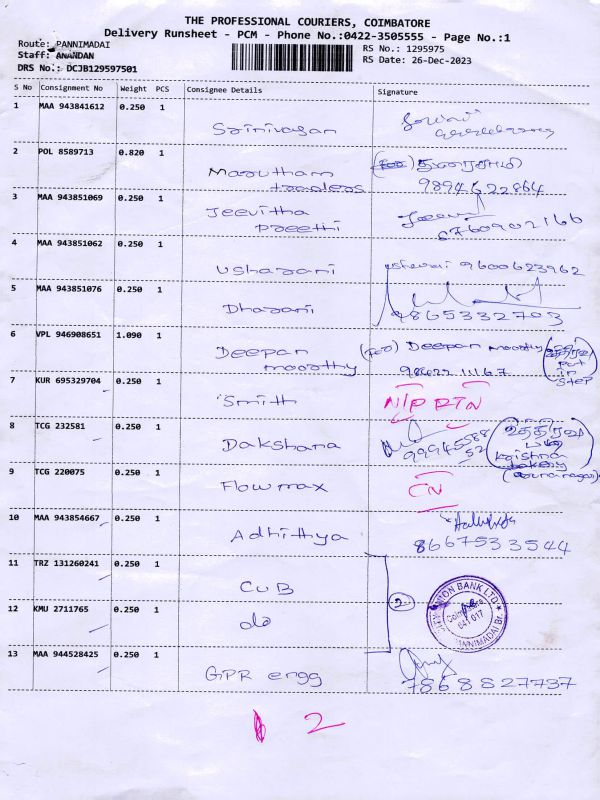 THE PROFESSIONAL COURIERS, COIMBATORE
Delivery Runsheet - PCM - Phone No.:0422-3505555 - Page No.:1
Route: PANNIMADAI
Staff: ANANDAN
DRS No.: DCJB129597501
RS No.: 1295975
RS Date: 26-Dec-2023
S No Consignment No Weight PCS Consignee Details Signature
1 MAA 943841612 0.250 1 Srinivasan
2 POL 8589713 0.820 1 Marutham traders
9894522864
3 MAA 943851069 0.250 1 Jeevitha Preethi
8760902166
4 MAA 943851062 0.250 1 Usharani 9600623962
5 MAA 943851076 0.250 1 Dharani
9865332703
6 VPL 946908651 1.090 1 Deepan moorthy (for) Deepan moorthy
put in step
7 KUR 695329704 0.250 1 Smith N/P RTN
8 TCG 232581 - 0.250 1 Dakshana
9994558852
Krishna bakery
9 TCG 220075 0.250 1 Flowmax CN
10 MAA 943854667 0.250 1 Adhithya
8667533544
11 TRZ 131260241 0.250 1 CUB
12 KMU 2711765 0.250 1 do
2
UNION BANK LTD
Coimbatore
641 017
PANNIMADAI Br.
13 MAA 944528425 0.250 1 GPR engg
7868827737
2